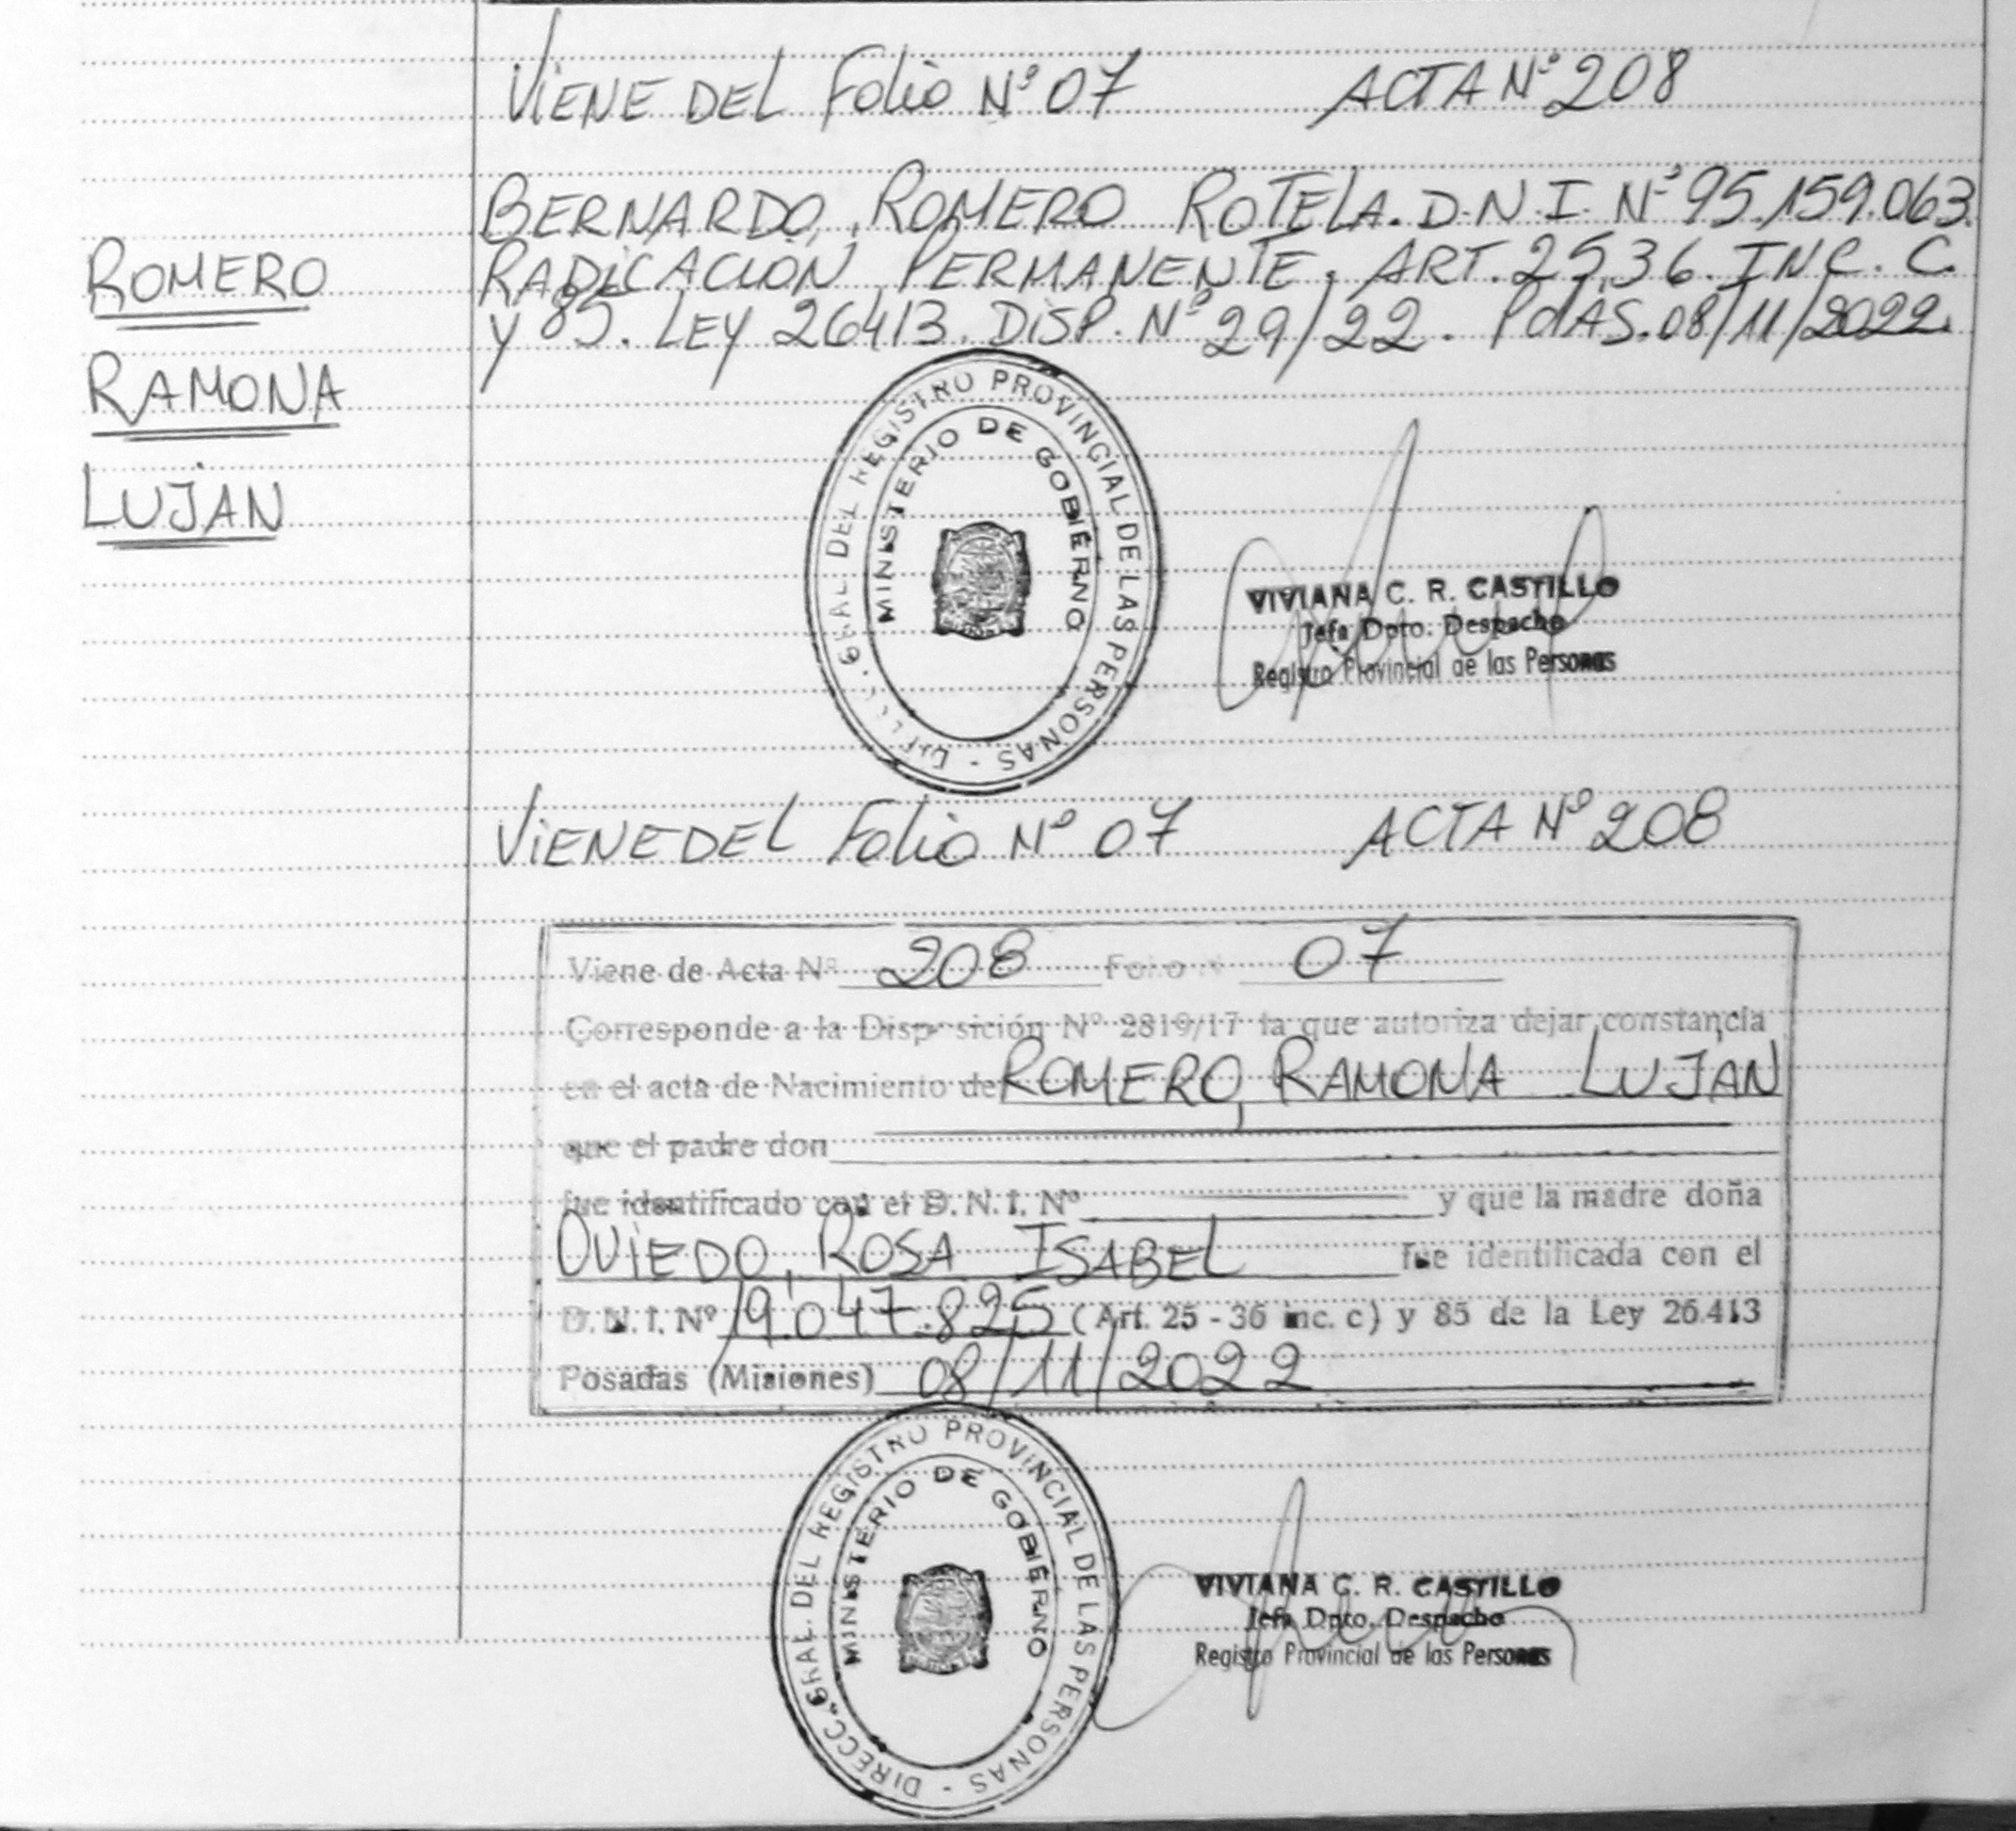 VIENE DEL Folio Nº 07 ACTA Nº 208
BERNARDO, ROMERO ROTELA. D.N.I. Nº 95.159.063.
RADICACIÓN PERMANENTE. ART. 25,36. INC. C.
y 85. LEY 26413. DISP. Nº 29/22. PdAS. 08/11/2022.
ROMERO
RAMONA
LUJAN
GRAL. DEL REGISTRO PROVINCIAL DE LAS PERSONAS -
MINISTERIO DE GOBIERNO
VIVIANA C. R. CASTILLO
Jefa Dpto. Despacho
Registro Provincial de las Personas
VIENE DEL Folio Nº 07 ACTA Nº 208
Viene de Acta Nº 208 Folio 07
Corresponde a la Disposición Nº 2819/17 la que autoriza dejar constancia
en el acta de Nacimiento de ROMERO, RAMONA LUJAN
que el padre don
fue identificado con el D. N. I. Nº y que la madre doña
OVIEDO, ROSA ISABEL fue identificada con el
D. N. I. Nº 19.047.825 (Art. 25 - 36 inc. c) y 85 de la Ley 26.413
Posadas (Misiones) 08/11/2022
DIRECC. GRAL. DEL REGISTRO PROVINCIAL DE LAS PERSONAS -
MINISTERIO DE GOBIERNO
VIVIANA C. R. CASTILLO
Jefa Dpto. Despacho
Registro Provincial de las Personas